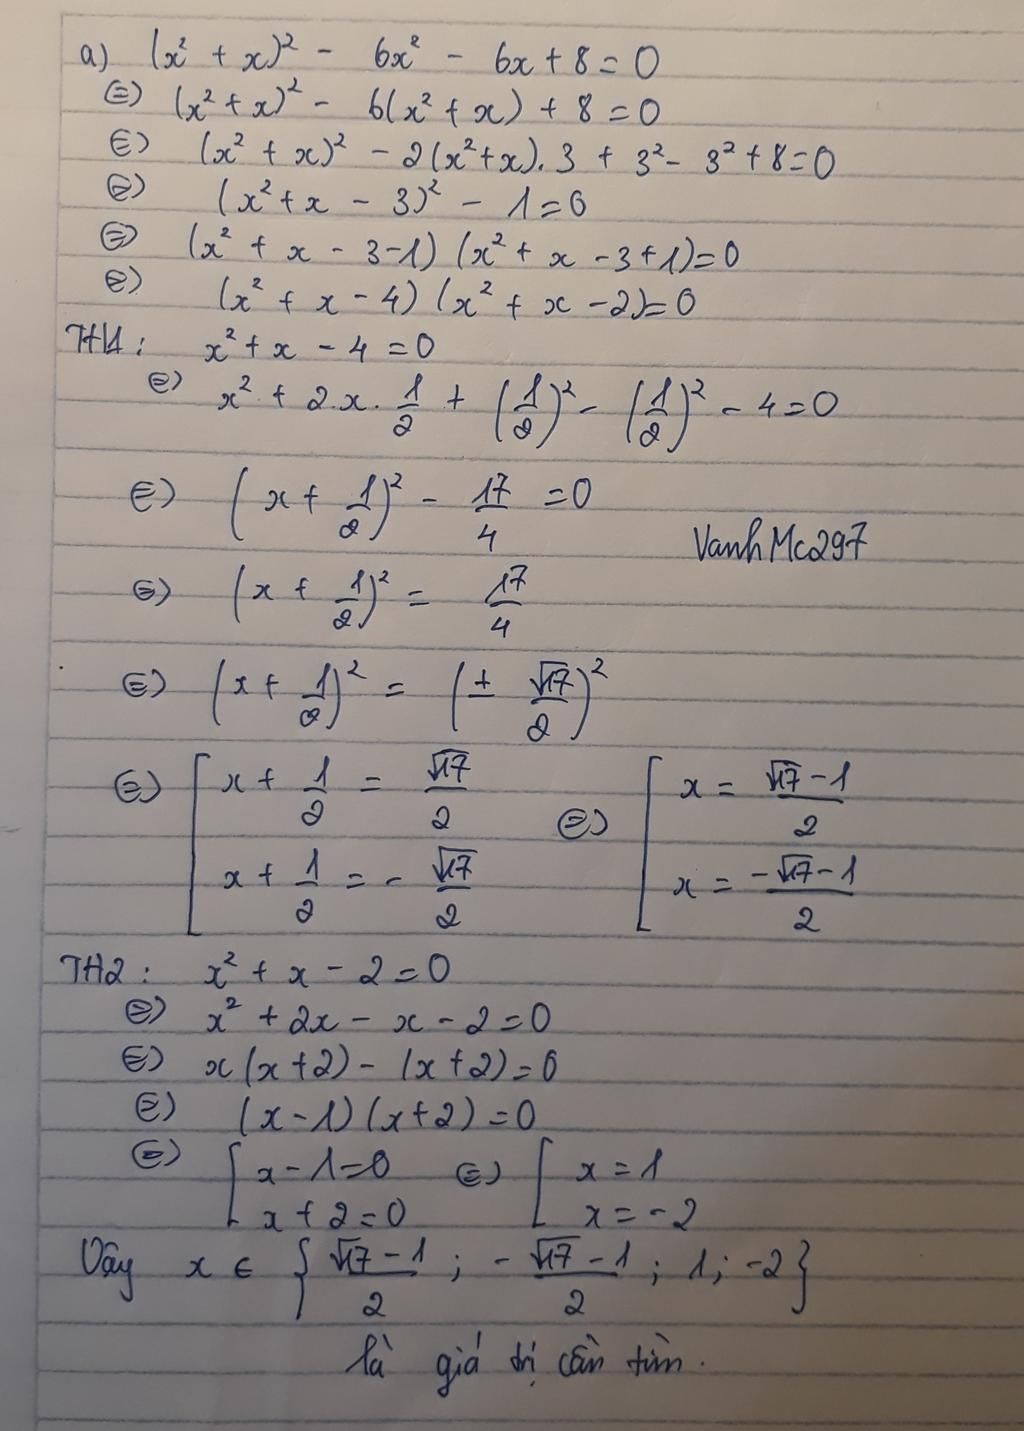 a) (x² + x)² - 6x² - 6x + 8 = 0
⇔ (x² + x)² - 6(x² + x) + 8 = 0
⇔ (x² + x)² - 2(x² + x).3 + 3² - 3² + 8 = 0
⇔ (x² + x - 3)² - 1 = 0
⇔ (x² + x - 3 - 1) (x² + x - 3 + 1) = 0
⇔ (x² + x - 4) (x² + x - 2) = 0
TH1: x² + x - 4 = 0
⇔ x² + 2.x.1/2 + (1/2)² - (1/2)² - 4 = 0
⇔ (x + 1/2)² - 17/4 = 0
VanhMc297
⇔ (x + 1/2)² = 17/4
⇔ (x + 1/2)² = (± √17/2)²
⇔ [ x + 1/2 = √17/2 ⇔ [ x = (√17 - 1)/2
x + 1/2 = - √17/2 x = (-√17 - 1)/2
TH2: x² + x - 2 = 0
⇔ x² + 2x - x - 2 = 0
⇔ x(x + 2) - (x + 2) = 0
⇔ (x - 1) (x + 2) = 0
⇔ [ x - 1 = 0 ⇔ [ x = 1
x + 2 = 0 x = -2
Vậy x ∈ { (√17 - 1)/2 ; - (√17 - 1)/2 ; 1; -2 }
là giá trị cần tìm.